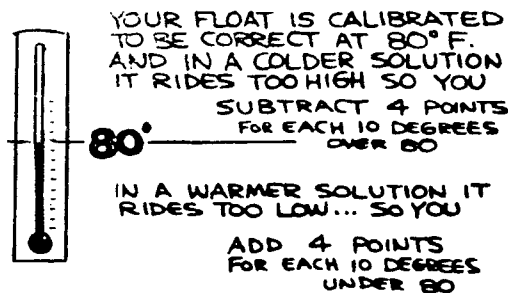 YOUR FLOAT IS CALIBRATED
TO BE CORRECT AT 80° F.
AND IN A COLDER SOLUTION
IT RIDES TOO HIGH SO YOU
SUBTRACT 4 POINTS
FOR EACH 10 DEGREES
OVER 80
80°
IN A WARMER SOLUTION IT
RIDES TOO LOW... SO YOU
ADD 4 POINTS
FOR EACH 10 DEGREES
UNDER 80